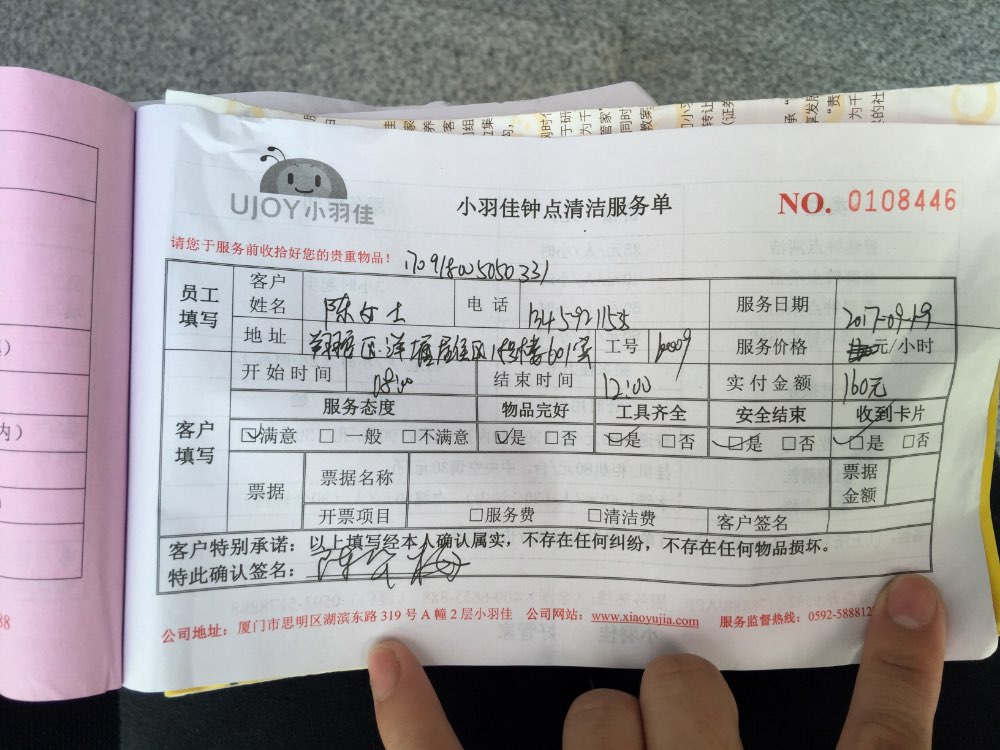 UJOY小羽佳
小羽佳钟点清洁服务单
NO. 0108446
请您于服务前收拾好您的贵重物品！
170918005050331
员工填写
客户姓名 陈女士 电话 服务日期 2017-09-19
地址 翔安区 601室 工号 服务价格 元/小时
开始时间 08:00 结束时间 12:00 实付金额 160元
客户填写
服务态度 物品完好 工具齐全 安全结束 收到卡片
☑满意 □一般 □不满意 ☑是 □否 ☑是 □否 ☑是 □否 ☑是 □否
票据 票据名称 票据金额
开票项目 □服务费 □清洁费 客户签名
客户特别承诺：以上填写经本人确认属实，不存在任何纠纷，不存在任何物品损坏。
特此确认签名：
公司地址：厦门市思明区湖滨东路 319 号 A 幢 2 层小羽佳 公司网站：www.xiaoyujia.com 服务监督热线：0592-588812